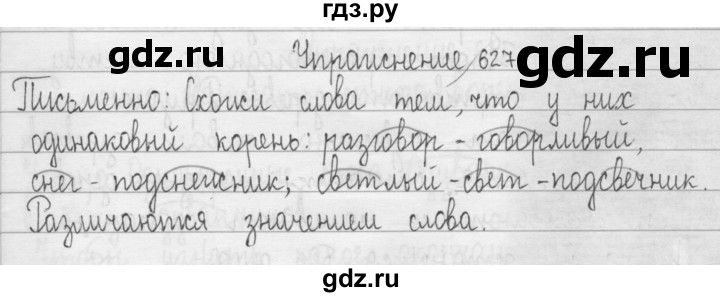 гдз.ру
gdz.ru gdz.ru
Упражнение 627
Письменно: Схожи слова тем, что у них
одинаковый корень: разговор - говорливый,
снег - подснежник; светлый - свет - подсвечник.
Различаются значением слова.
gdz.ru